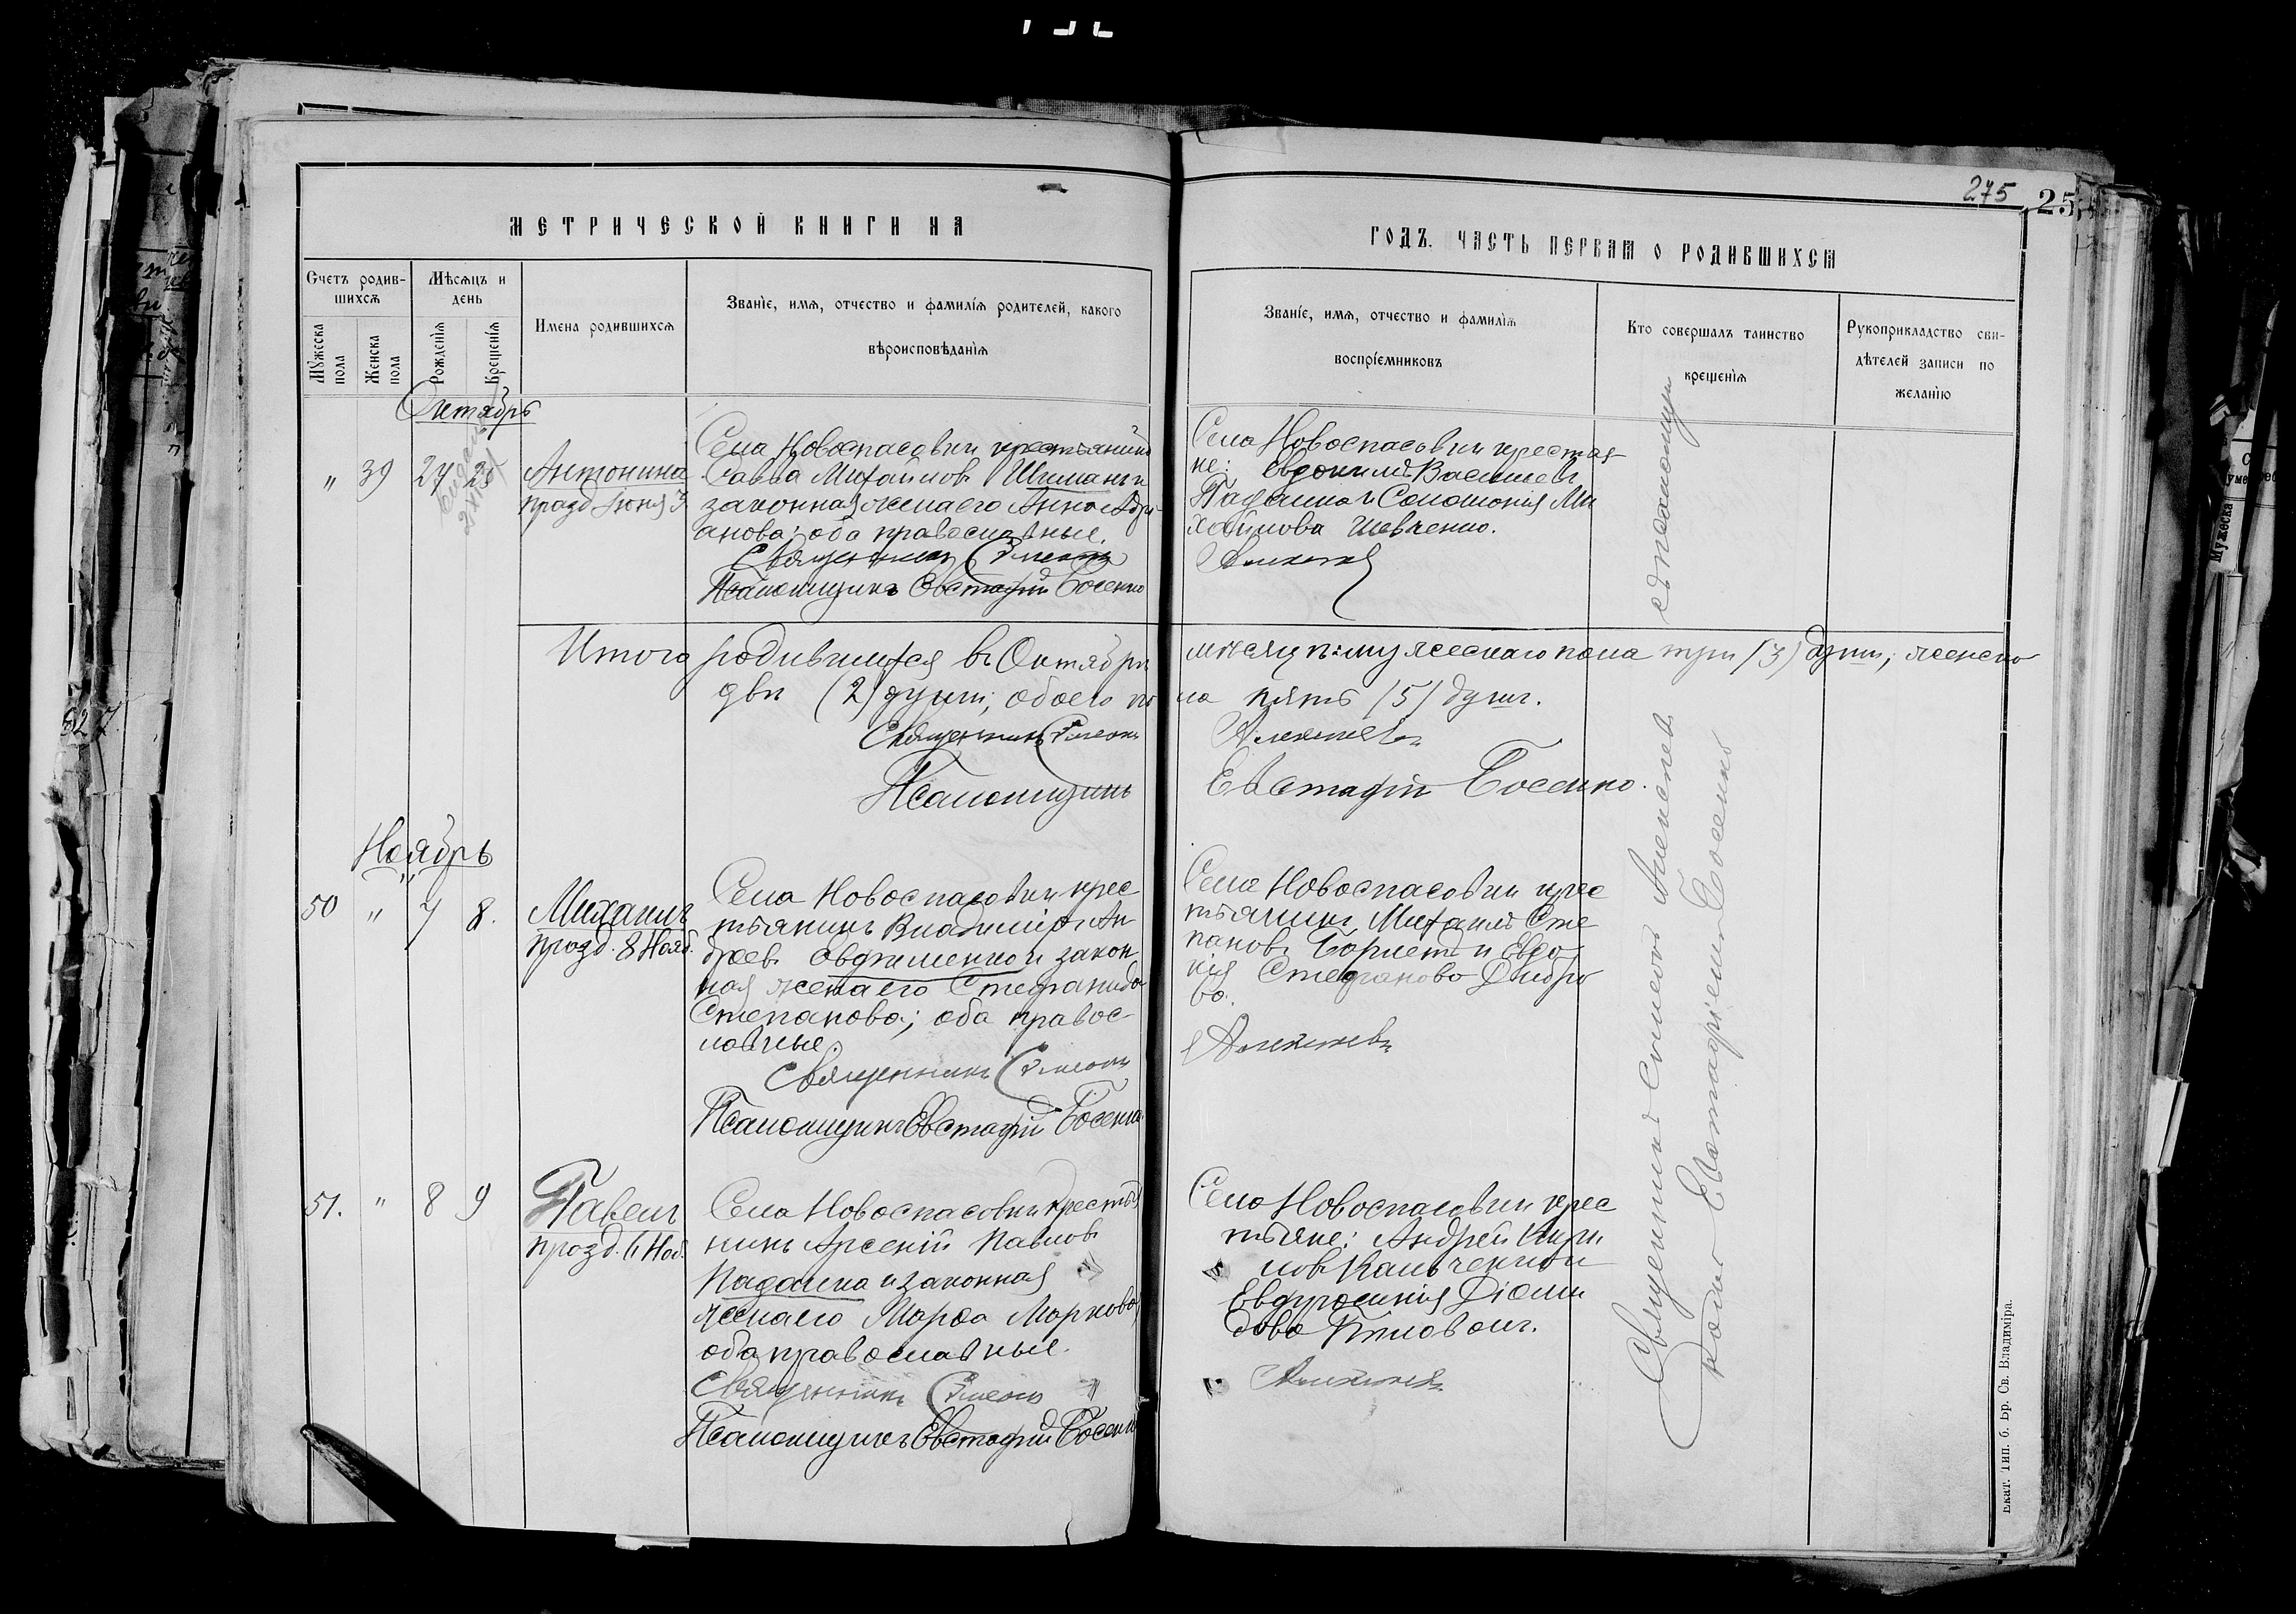 275
25
МЕТРИЧЕСКОЙ КНИГИ НА
ГОДЪ. ЧАСТЬ ПЕРВАЯ О РОДИВШИХСЯ
Счетъ родив-
шихся
Мужеска
пола
Женска
пола
Мѣсяцъ и
день
Рожденія
Крещенія
Имена родившихся
Званіе, имя, отчество и фамилія родителей, какого
вѣроисповѣданія
Званіе, имя, отчество и фамилія
воспріемниковъ
Кто совершалъ таинство
крещенія
Рукоприкладство сви-
дѣтелей записи по
желанію
Октябрь
" 39 27 28
Антонина
празд Іюня 3
Села Новоспасовки крестьянинъ
Савва Михайловъ и
законная жена его Анна Адрі-
анова; оба православные.
Священникъ Симеонъ
Псаломщикъ Евстафій Босенко
Села Новоспасовки крестья-
не: Евдокимъ Васильев
Падалка и Соломонія Ми
хайлова Шевченко.
Алексеев
Итого родившихся въ Октябрѣ мѣсяцѣ: мужескаго пола три (3) души, женско
двѣ (2) души; обоего пола пять (5) душъ.
Священникъ Симеонъ Алексеевъ
Псаломщикъ Евстафій Босенко.
Ноябрь
50 " 7 8.
Михаилъ
празд. 8 Нояб.
Села Новоспасовки крес
тьянинъ Владиміръ Ан
дреев Овдіменко и закон
ная жена его Стефанида
Степанова; оба правос-
лавные.
Священникъ Симеонъ
Псаломщикъ Евстафій Босенко
Села Новоспасовки крес
тьянинъ Михаилъ Сте
пановъ и Евдо
кія Стефанова
ва.
Алексеевъ
51. " 8 9
Павелъ
празд. 6 Нояб.
Села Новоспасовки крестья
нинъ Арсеній Павловъ
Падалка и законная
жена его Марфа Маркова
оба православные.
Священникъ Симеонъ
Псаломщикъ Евстафій Босенко
Села Новоспасовки крес
тьяне: Андрей Кири
ловъ Кальченко и
Евфросинія Діоми
дова
Алексеевъ
Священникъ Симеонъ Алексеевъ съ псаломщи
комъ Евстафіемъ Босенко
Екат. Тип. б. Бр. Св. Владиміра.